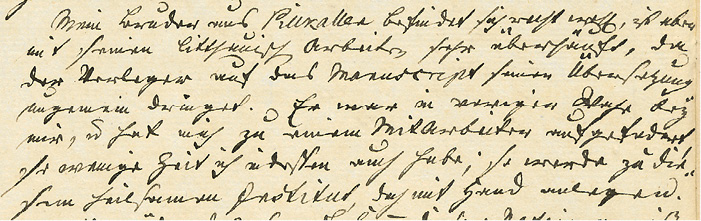 Mein Bruder aus Pillkallen befindet sich recht wohl, ist aber
mit seinen litthauisch Arbeiten sehr überhäuft, da
der Verleger auf das Manuscript seiner Übersetzung
ungemein dringet. Er war in voriger Woche bey
mir, u hat mich zu einem Mitarbeiter aufgefodert
so wenige Zeit ich indessen auch habe; so werde zu die-
sem heilsamen Institut, doch mit Hand anlegen.